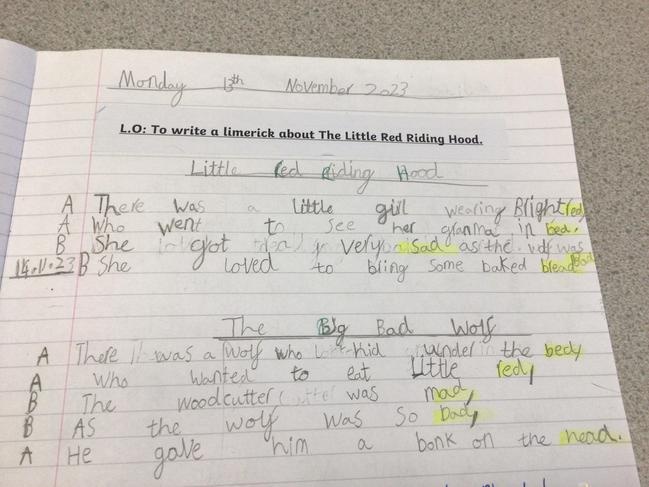 Monday 13th November 2023
L.O: To write a limerick about The Little Red Riding Hood.
Little Red Riding Hood
A There was a little girl wearing Bright red,
A Who went to see her granma in bed.
B She got very sad as the was
14.11.23 B She loved to bring some baked bread
The Big Bad Wolf
A There was a wolf who hid under the bed,
A Who wanted to eat Little red,
B The woodcutter was mad,
B As the wolf was so bad,
A He gave him a bonk on the head.